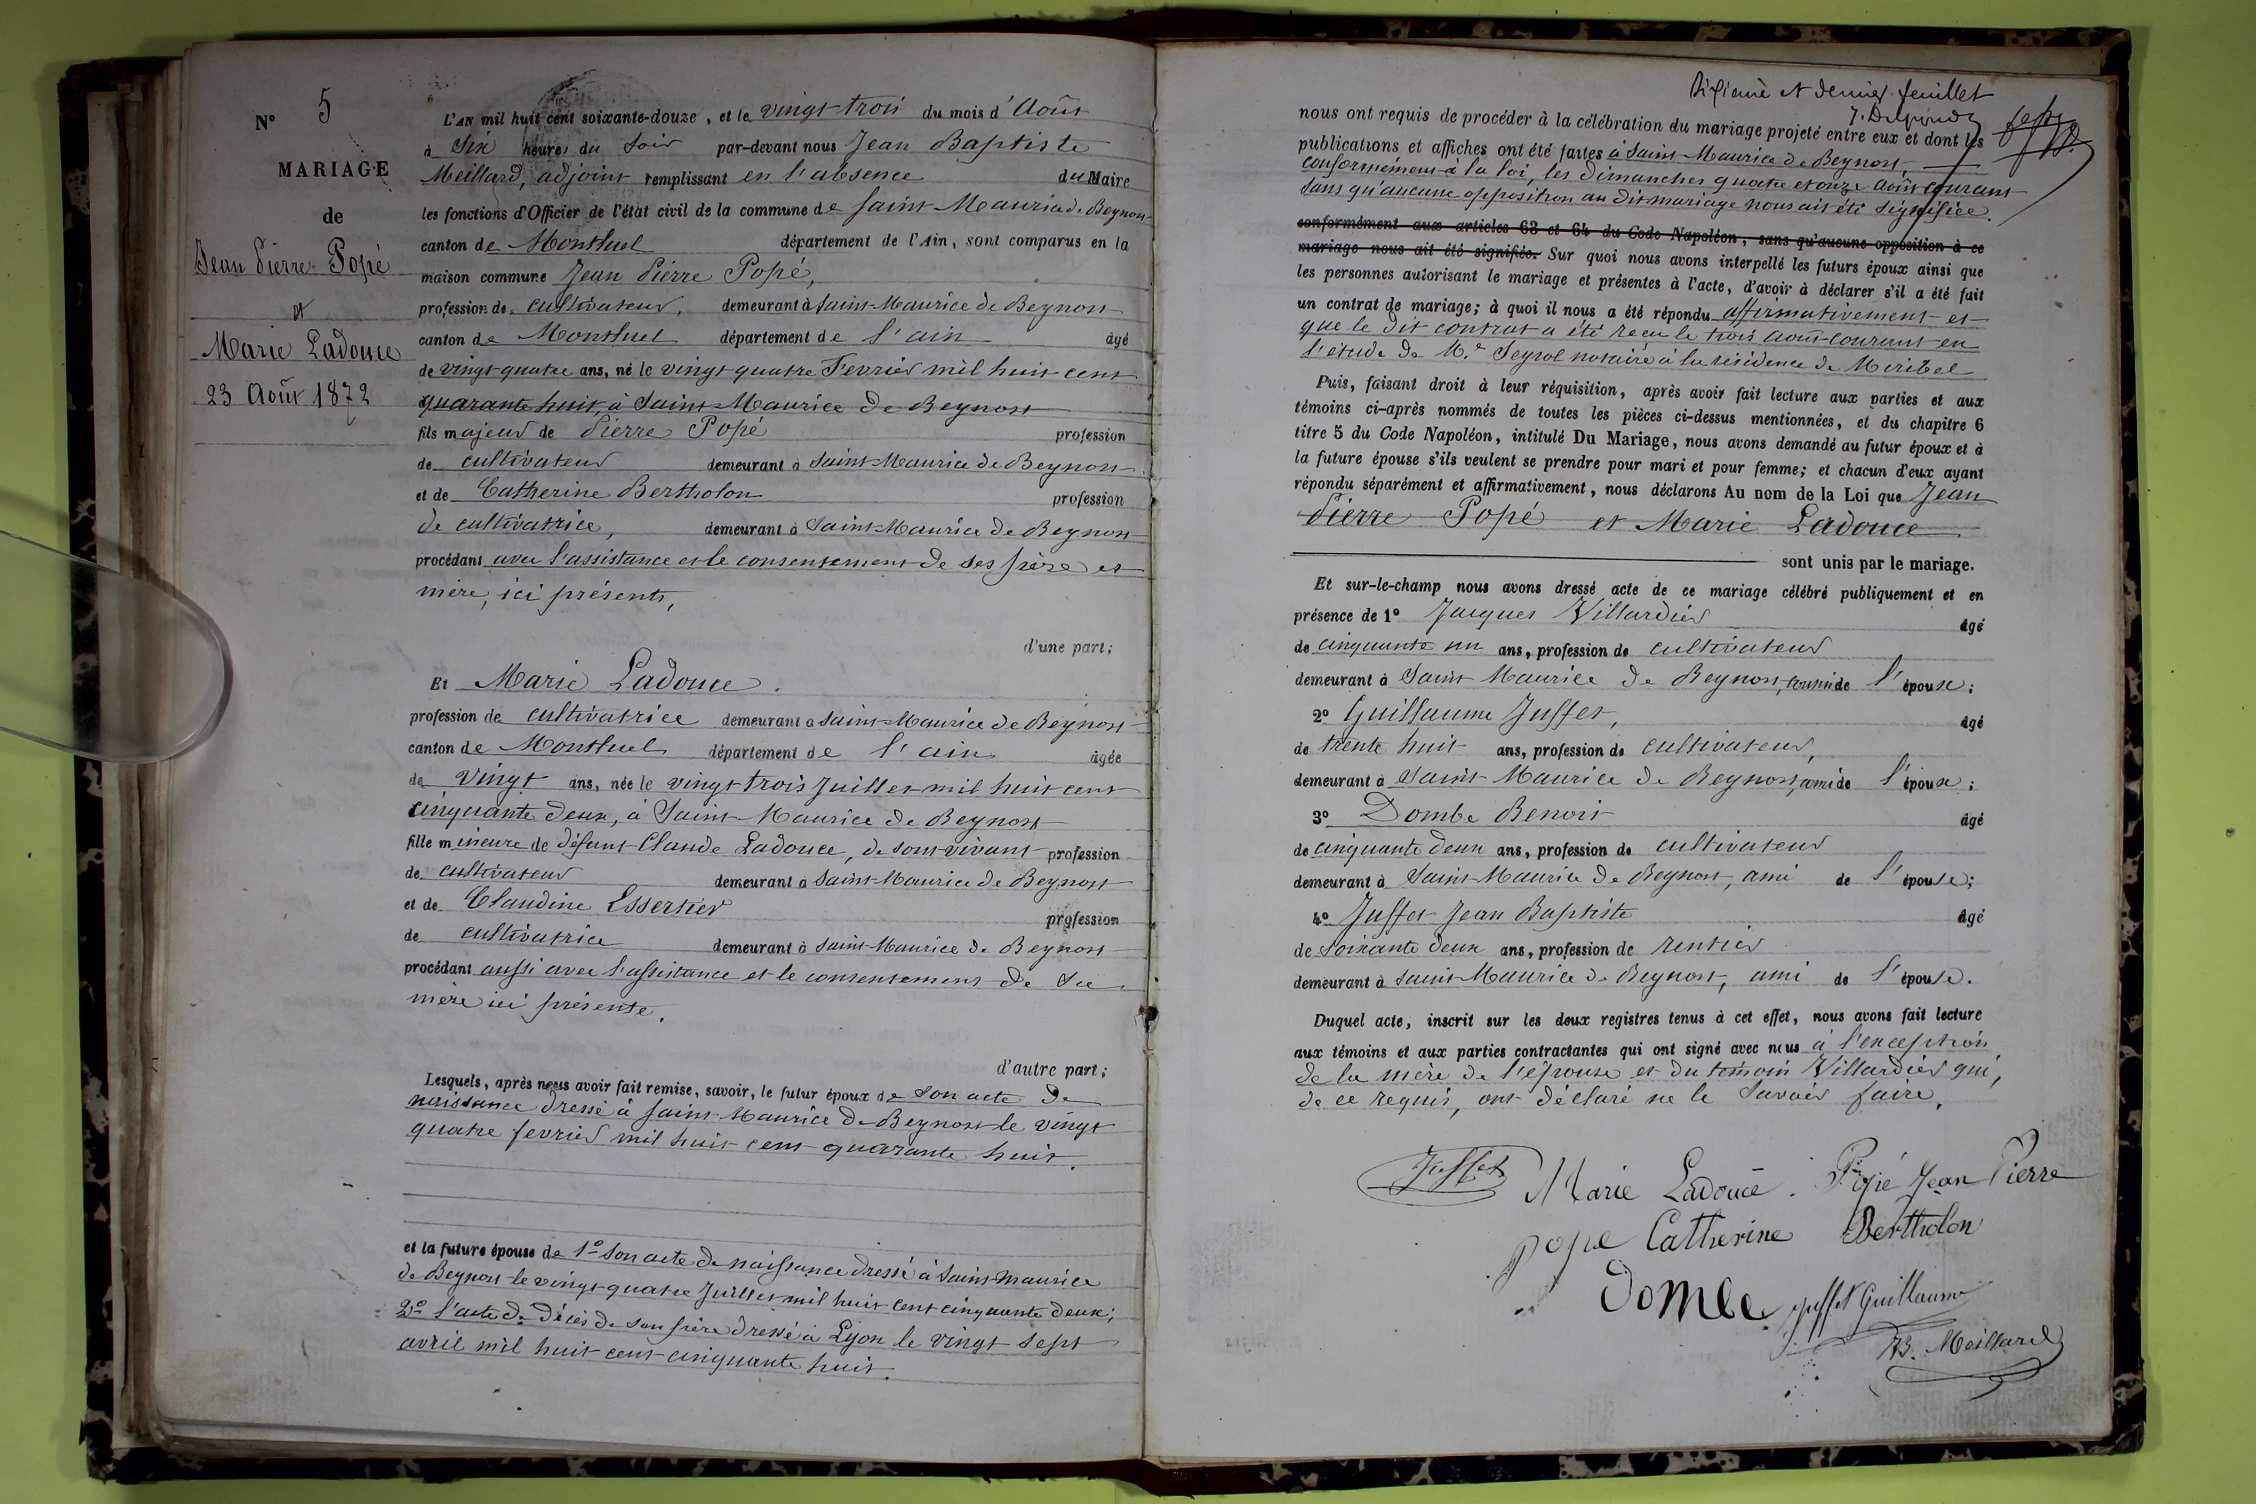 N° 5
MARIAGE
de
Jean Pierre Popé
et
Marie Ladouce
23 Août 1872
L'AN mil huit cent soixante-douze, et le vingt-trois du mois d'Août
à Six heures du Soir par-devant nous Jean Baptiste
Meillard, adjoint remplissant en l'absence du Maire
les fonctions d'Officier de l'état civil de la commune de Saint-Maurice de Beynost
canton de Montluel département de l'Ain, sont comparus en la
maison commune Jean Pierre Popé,
profession de cultivateur, demeurant à Saint-Maurice de Beynost
canton de Montluel département de l'ain âgé
de vingt quatre ans, né le vingt quatre Fevrier mil huit cent
quarante huit, à Saint-Maurice de Beynost
fils majeur de Pierre Popé profession
de cultivateur demeurant à Saint-Maurice de Beynost
et de Catherine Bertholon profession
de cultivatrice, demeurant à Saint-Maurice de Beynost
procédant avec l'assistance et le consentement de ses père et
mère, ici présents,
d'une part;
Et Marie Ladouce.
profession de cultivatrice demeurant à Saint-Maurice de Beynost
canton de Montluel département de l'ain âgée
de Vingt ans, née le vingt trois Juillet mil huit cent
cinquante deux, à Saint-Maurice de Beynost
fille mineure de défunt Claude Ladouce, de son vivant profession
de cultivateur demeurant à Saint-Maurice de Beynost
et de Claudine Essertier profession
de cultivatrice demeurant à Saint-Maurice de Beynost
procédant aussi avec l'assistance et le consentement de sa
mère ici présente.
d'autre part;
Lesquels, après nous avoir fait remise, savoir, le futur époux de Son acte de
naissance dressé à Saint-Maurice de Beynost le vingt
quatre fevrier mil huit cent quarante huit.
et la future épouse de 1° Son acte de naissance dressé à Saint-Maurice
de Beynost le vingt quatre Juillet mil huit cent cinquante deux;
2° l'acte de décès de son père dressé à Lyon le vingt sept
avril mil huit cent cinquante huit.
Dixième et dernier feuillet
nous ont requis de procéder à la célébration du mariage projeté entre eux et dont les
publications et affiches ont été faites à Saint-Maurice de Beynost,
conformément à la loi, les dimanches quatre et onze août courant
sans qu'aucune opposition au dit mariage nous ait été signifiée.
conformément aux articles 63 et 64 du Code Napoléon, sans qu'aucune opposition à ce
mariage nous ait été signifiée. Sur quoi nous avons interpellé les futurs époux ainsi que
les personnes autorisant le mariage et présentes à l'acte, d'avoir à déclarer s'il a été fait
un contrat de mariage; à quoi il nous a été répondu affirmativement et
que le dit contrat a été recu le trois août courant en
l'étude de M.e Seyvol notaire à la résidence de Miribel
Puis, faisant droit à leur réquisition, après avoir fait lecture aux parties et aux
témoins ci-après nommés de toutes les pièces ci-dessus mentionnées, et du chapitre 6
titre 5 du Code Napoléon, intitulé Du Mariage, nous avons demandé au futur époux et à
la future épouse s'ils veulent se prendre pour mari et pour femme; et chacun d'eux ayant
répondu séparément et affirmativement, nous déclarons Au nom de la Loi que Jean
Pierre Popé et Marie Ladouce
sont unis par le mariage.
Et sur-le-champ nous avons dressé acte de ce mariage célébré publiquement et en
présence de 1° Jacques Villardier âgé
de cinquante un ans, profession de cultivateur
demeurant à Saint Maurice de Beynost, de l'épouse;
2° Guillaume Juffet, âgé
de trente huit ans, profession de cultivateur,
demeurant à Saint-Maurice de Beynost, ami de l'épouse;
3° Dombe Benoit âgé
de cinquante deux ans, profession de cultivateur
demeurant à Saint-Maurice de Beynost, ami de l'épouse;
4° Juffet Jean Baptiste âgé
de soixante deux ans, profession de rentier
demeurant à Saint-Maurice de Beynost, ami de l'épouse.
Duquel acte, inscrit sur les deux registres tenus à cet effet, nous avons fait lecture
aux témoins et aux parties contractantes qui ont signé avec nous à l'exception
de la mère de l'épouse et du témoin Villardier qui,
de ce requis, ont déclaré ne le Savoir faire.
Juffet Marie Ladouce. Popé Jean Pierre
pope Catherine Bertholon
Dombe juffet Guillaume
JB. Meillard